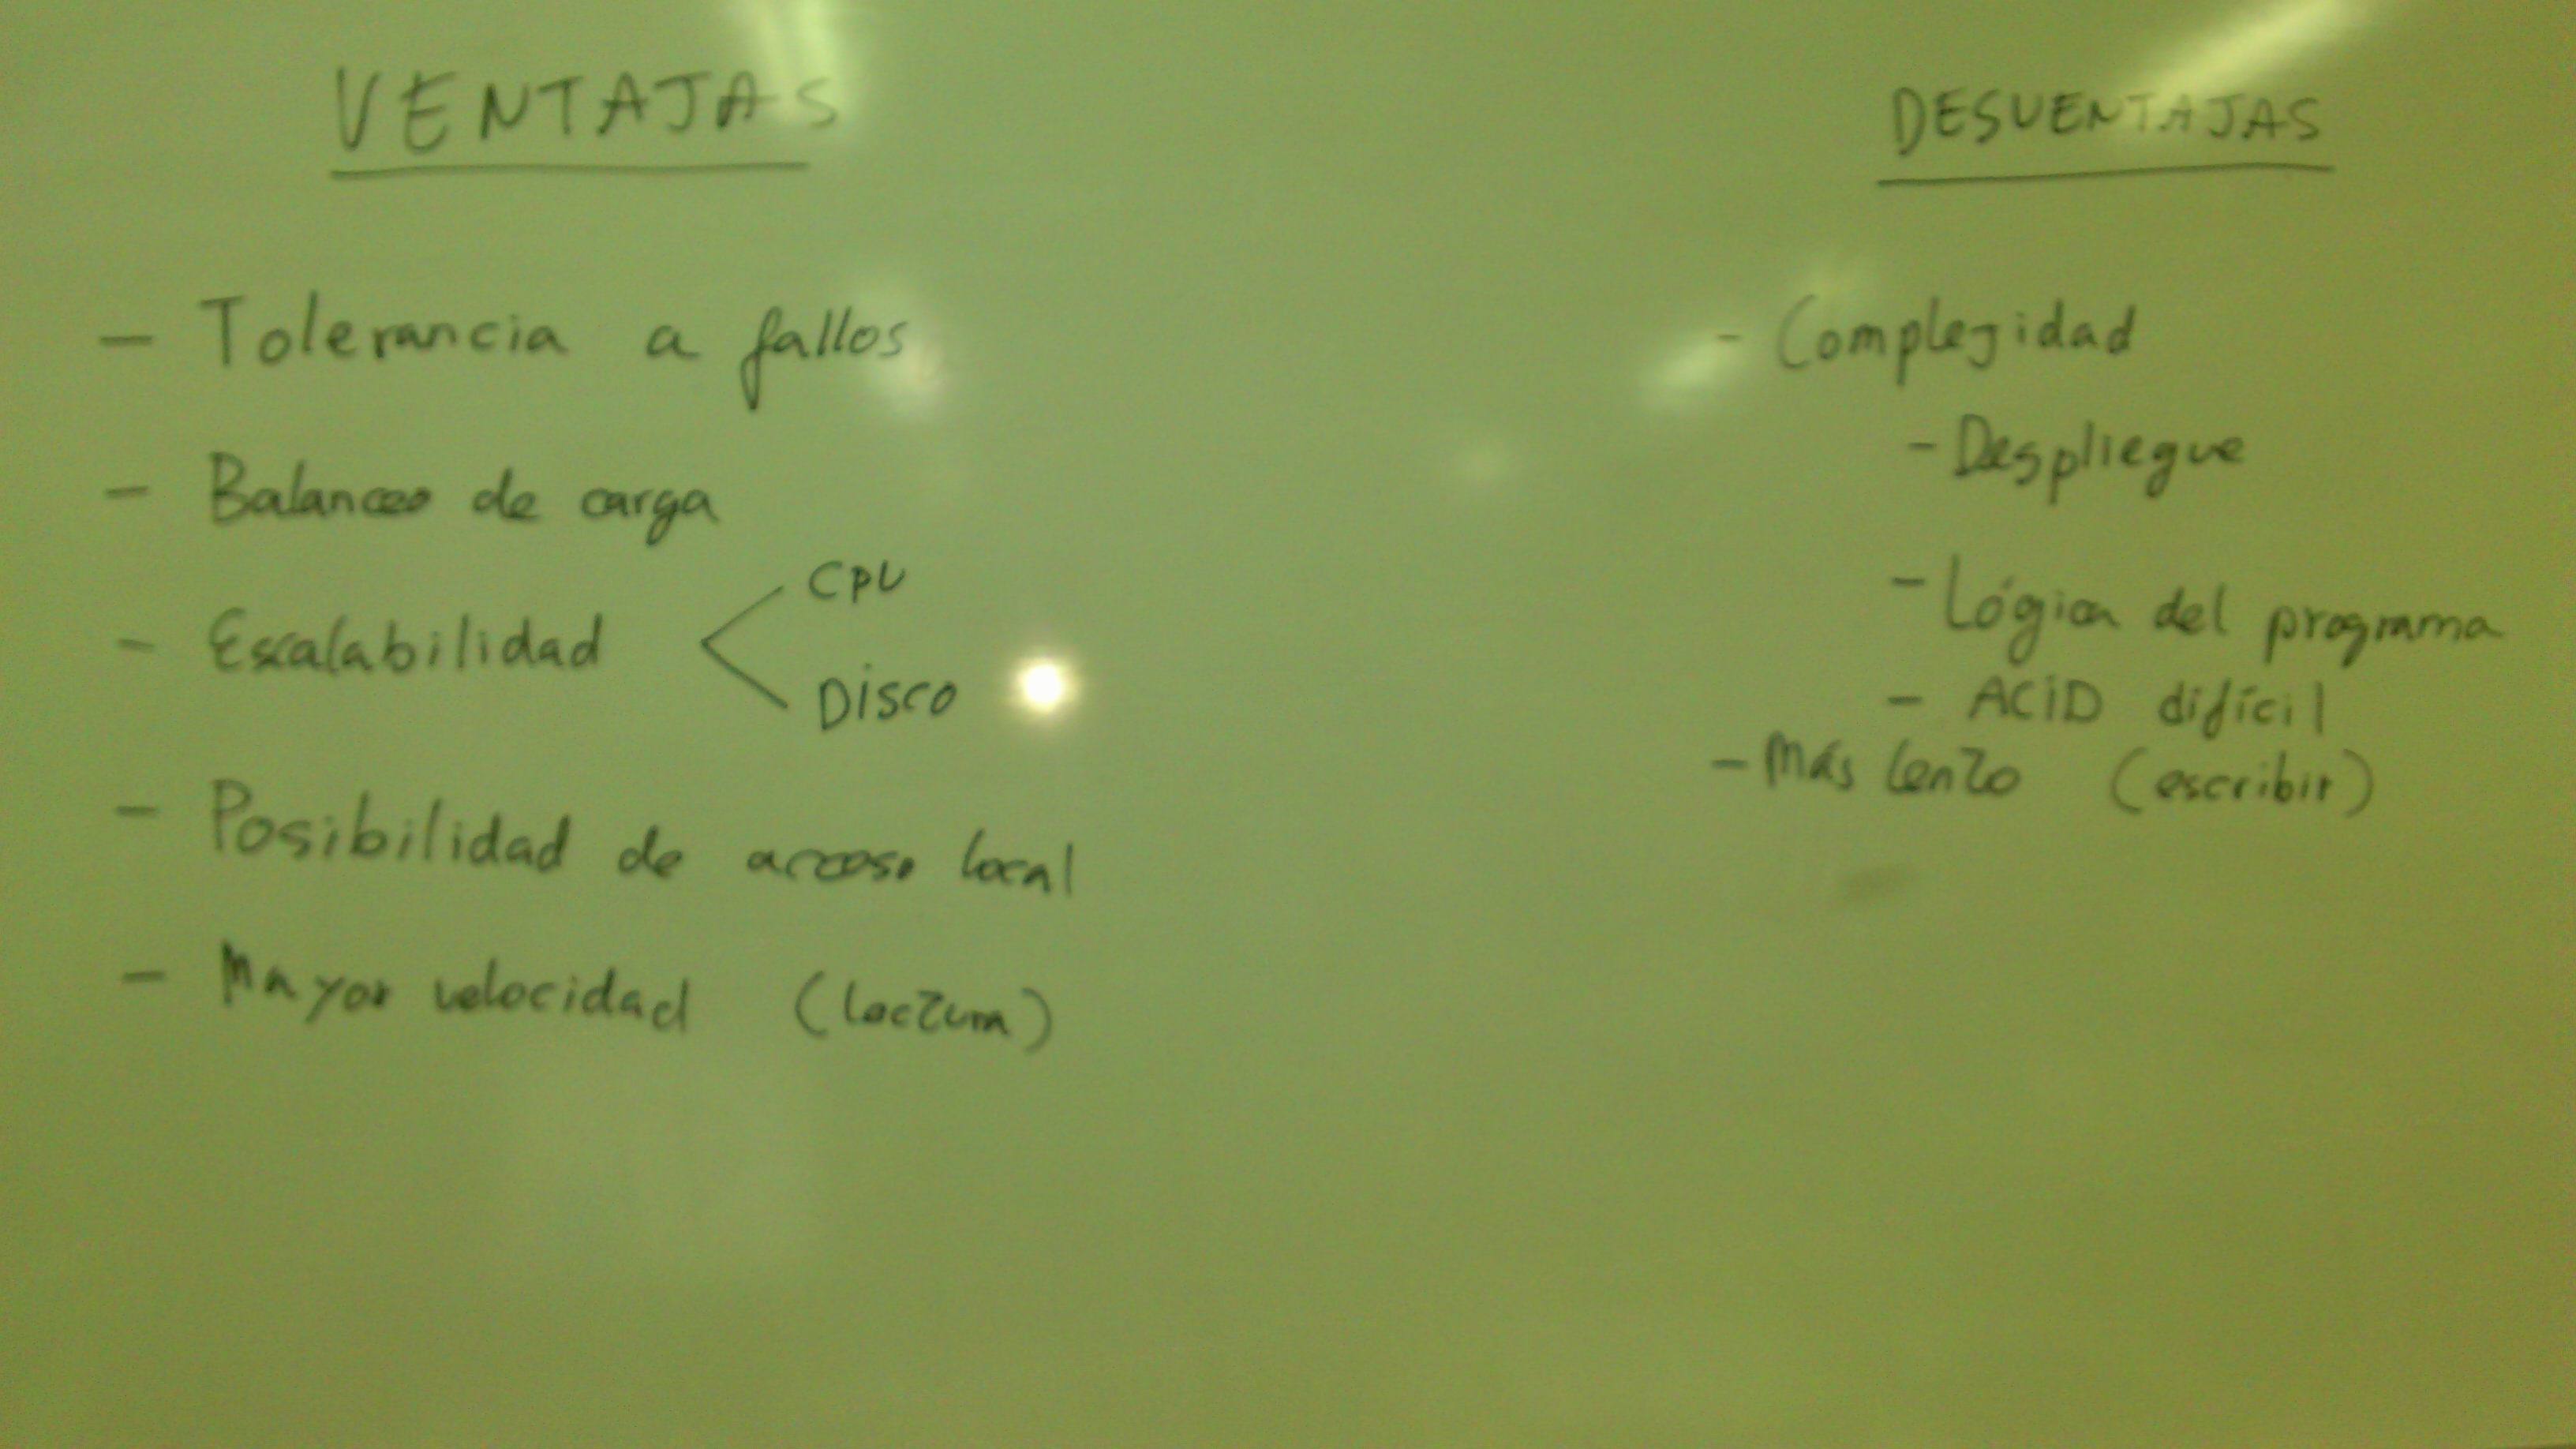 VENTAJAS
- Tolerancia a fallos
- Balanceo de carga
- Escalabilidad < CPU
DISCO
- Posibilidad de acceso local
- Mayor velocidad (lectura)
DESVENTAJAS
- Complejidad
- Despliegue
- Lógica del programa
- ACID difícil
- Más lento (escribir)